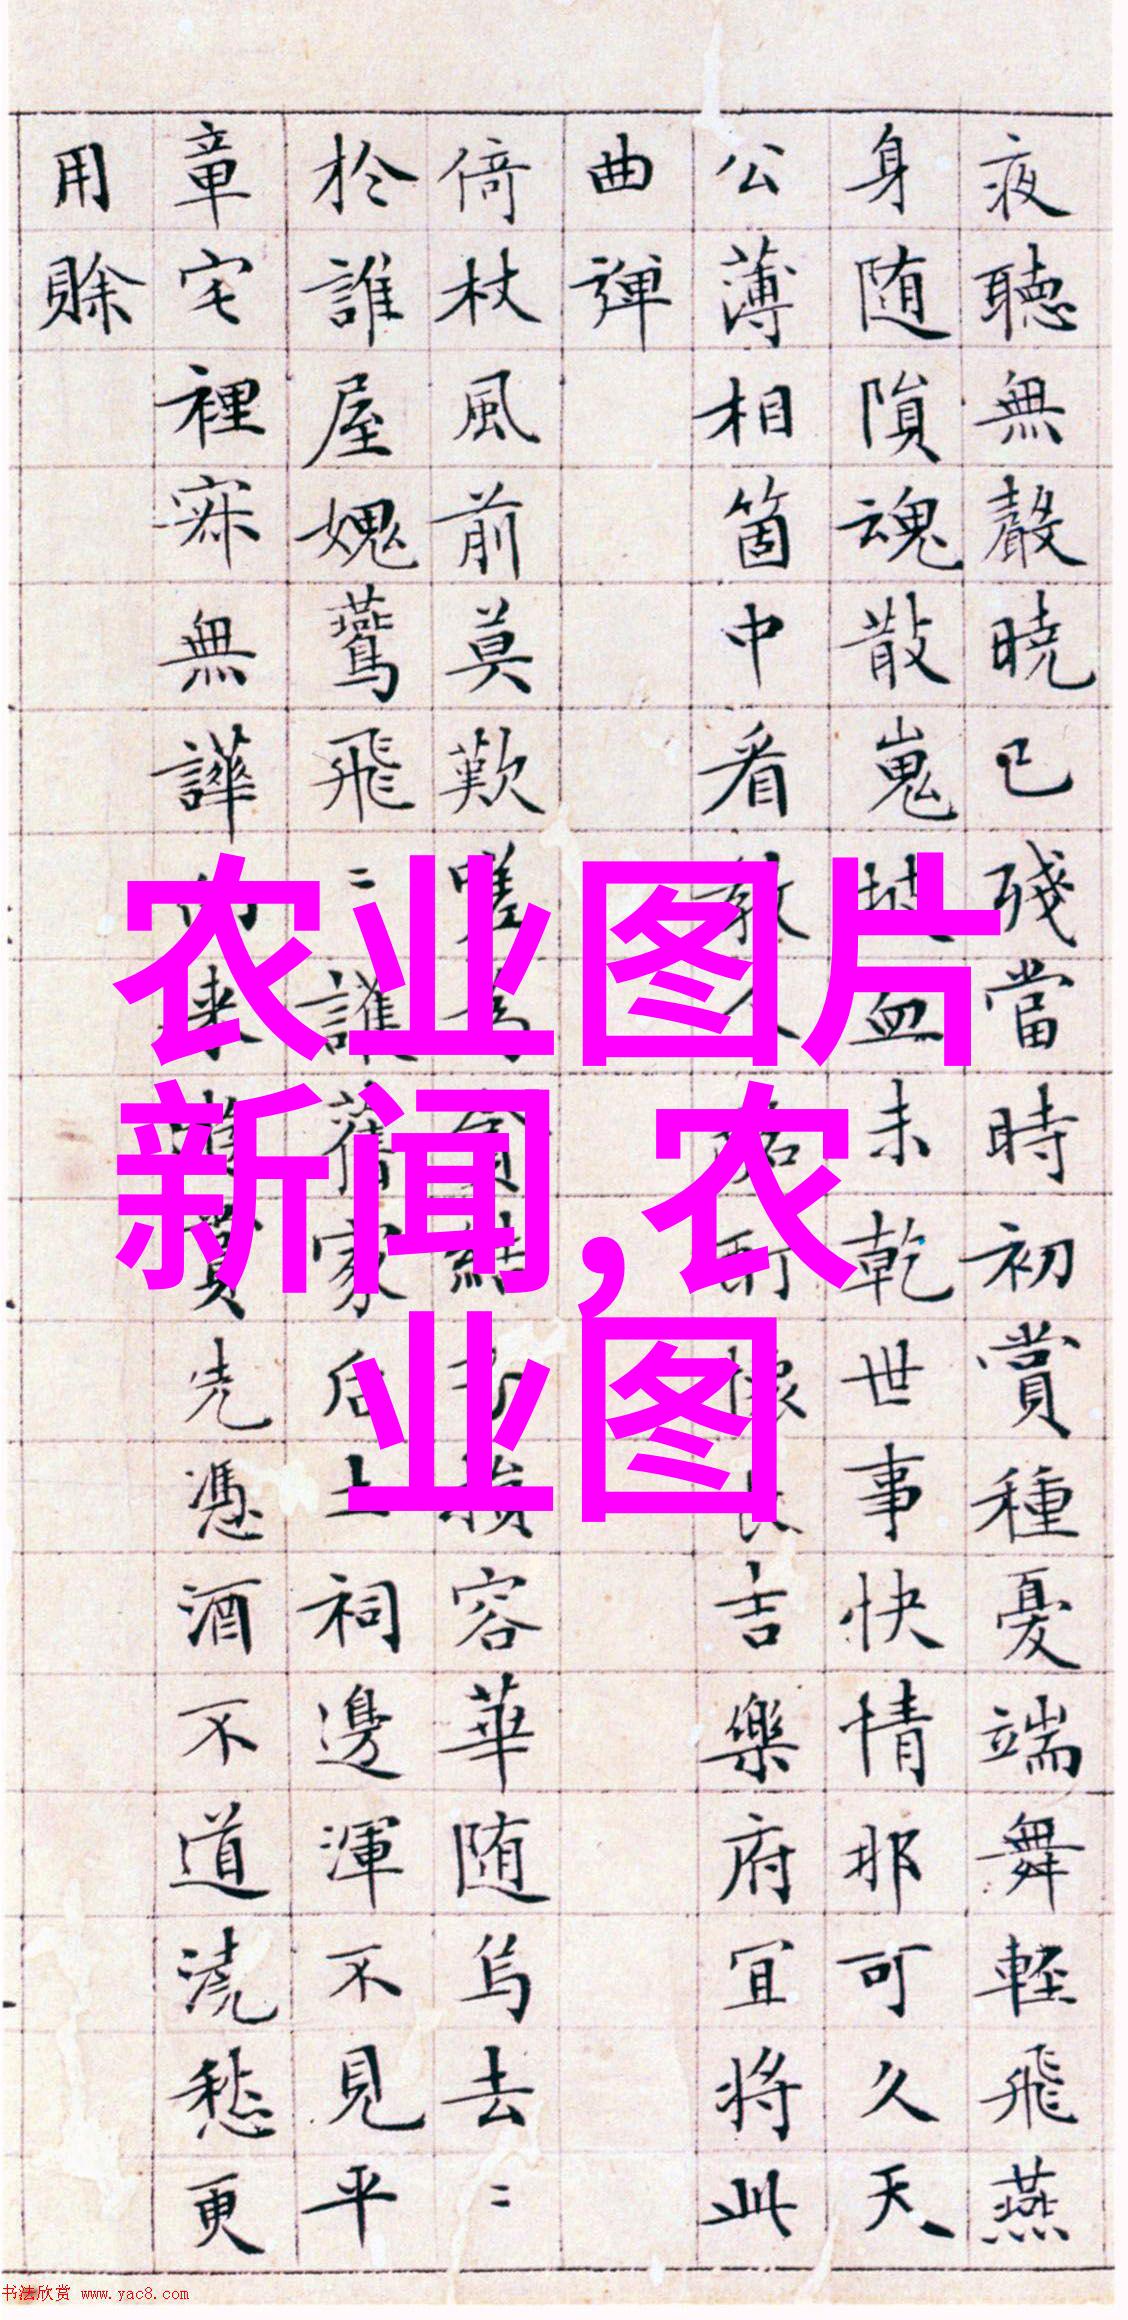 夜聽無聲曉已殘當時初賞種憂端舞輕飛燕
身随隕魂散嵬血未乾世事快情那可久天
公薄相箇中看教懷長吉樂府冝將此
曲彈
倚杖風前莫歎嗟為貧容華随烏去〻
於誰屋媿鷰飛〻護舊家后土祠邊渾不見平
章宅裡寂無譁来賞先憑酒不道澆愁更
用賖
农业图片
新闻,农
业图
书法欣赏 www.yac8.com